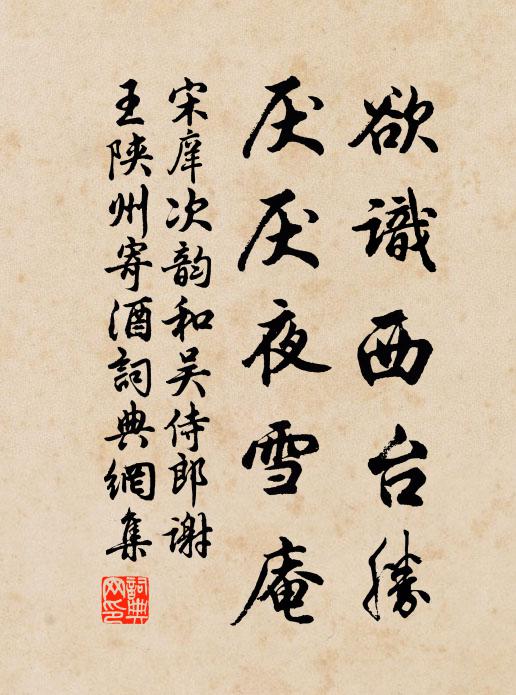 欲識西台勝
厌厌夜雪庵
宋庠次韵和吴侍郎谢
王陕州寄酒詞典網集
詞典网印